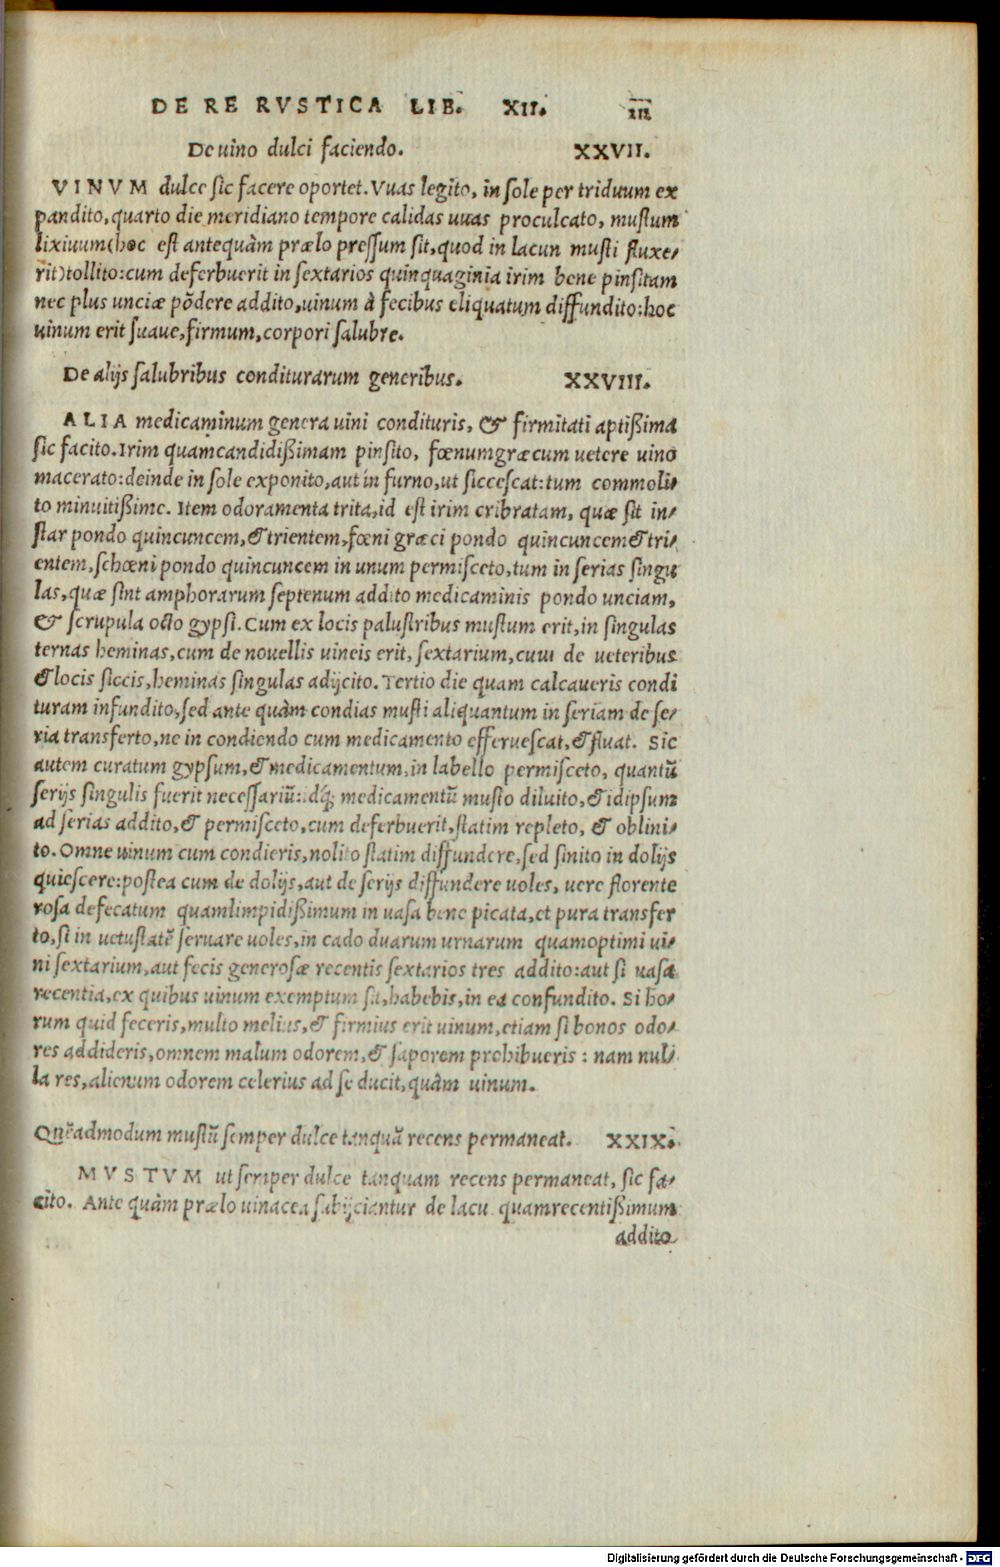 DE RE RVSTICA LIB. XII. III
De uino dulci faciendo. XXVII.
VINVM dulce sic facere oportet. Vuas legito, in sole per triduum ex
pandito, quarto die meridiano tempore calidas uuas proculcato, mustum
lixiuum (hoc est antequàm prælo pressum sit, quod in lacun musti fluxe-
rit) tollito: cum deferbuerit in sextarios quinquaginia irim bene pinsitam
nec plus unciæ põdere addito, uinum à fecibus eliquatum diffundito: hoc
uinum erit suaue, firmum, corpori salubre.
De alijs salubribus conditurarum generibus. XXVIII.
ALIA medicaminum genera uini condituris, & firmitati aptißima
sic facito. Irim quamcandidißimam pinsito, fœnumgræcum uetere uino
macerato: deinde in sole exponito, aut in furno, ut siccescat: tum commoli-
to minuitißime. Item odoramenta trita, id est irim cribratam, quæ sit in-
star pondo quincuncem, & trientem, fœni græci pondo quincuncem & tri-
entem, schœni pondo quincuncem in unum permisceto, tum in serias singu
las, quæ sint amphorarum septenum addito medicaminis pondo unciam,
& scrupula octo gypsi. Cum ex locis palustribus mustum erit, in singulas
ternas heminas, cum de nouellis uineis erit, sextarium, cum de ueteribus
& locis siccis, heminas singulas adijcito. Tertio die quam calcaueris condi
turam infundito, sed ante quàm condias musti aliquantum in seriam de se-
ria transferto, ne in condiendo cum medicamento efferuescat, & fluat. Sic
autem curatum gypsum, & medicamentum, in labello permisceto, quantũ
serijs singulis fuerit necessariũ: idq; medicamentũ musto diluito, & idipsum
ad serias addito, & permisceto, cum deferbuerit, statim repleto, & oblini-
to. Omne uinum cum condieris, nolito statim diffundere, sed sinito in dolijs
quiescere: postea cum de dolijs, aut de serijs diffundere uoles, uere florente
rosa defecatum quamlimpidißimum in uasa bene picata, et pura transfer
to, si in uetustatẽ seruare uoles, in cado duarum urnarum quamoptimi ui-
ni sextarium, aut fecis generosæ recentis sextarios tres addito: aut si uasa
recentia, ex quibus uinum exemptum sit, habebis, in ea confundito. Si ho-
rum quid feceris, multo melius, & firmius erit uinum, etiam si bonos odo-
res addideris, omnem malum odorem, & saporem prohibueris: nam nul-
la res, alienum odorem celerius ad se ducit, quàm uinum.
Quẽadmodum mustũ semper dulce tanquã recens permaneat. XXIX.
MVSTVM ut semper dulce tanquam recens permaneat, sic fa-
cito. Ante quàm prælo uinacea subijciantur de lacu quamrecentißimum
addito
Digitalisierung gefördert durch die Deutsche Forschungsgemeinschaft - DFG